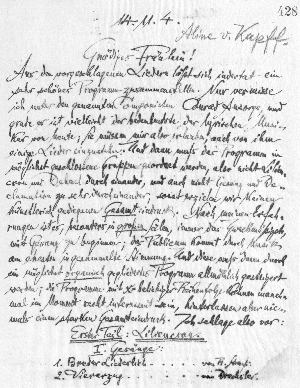 428
14.11.4.
Aline v. Kapff.
Gnädiges Fräulein!
Aus den vorgeschlagenen Liedern läßt sich jedenfalls ein
sehr schönes Programm zusammenstellen. Nur vermisse
ich unter den genannten Componisten Conrad Ansorge, und
grade er ist vielleicht der bedeutendste der lyrischen Musi-
ker von heute; Sie müssen mir also erlauben, auch von ihm
einige Lieder einzuschalten. Und dann muß das Programm in
möglichst geschlossene Gruppen geordnet werden, also nicht
von mir Dehmel durcheinander, und auch nicht Gesang und De-
clamation zu sehr durcheinander; sonst erzielen wir keinen
künstlerisch gediegenen Gesamteindruck. Nach meinen Erfah-
rungen ist es, besonders in großen Sälen, immer das
mit Gesang zu beginnen; das Publicum kommt durch Musik
am ehesten in gesammelte Stimmung. Und dann muß durch
ein möglichst organisch gegliedertes Programm allmählich gesteigert
werden; die Programme mit beliebiger Reihenfolge können manch-
mal im Moment recht interessant sein, hinterlassen aber nie-
mals einen starken Gesamteindruck. Ich schlage also vor:
Erster Teil: Liliencron.
I. Gesänge:
1. Bruder Liederlich von
2. Viererzug von